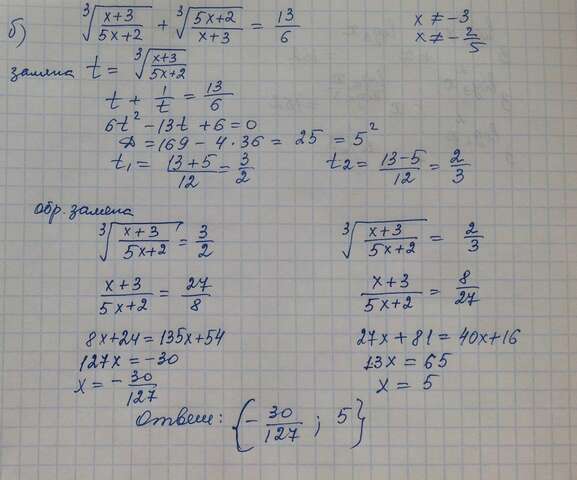 б) ∛((x+3)/(5x+2)) + ∛((5x+2)/(x+3)) = 13/6
x ≠ -3
x ≠ -2/5
замена t = ∛((x+3)/(5x+2))
t + 1/t = 13/6
6t² - 13t + 6 = 0
D = 169 - 4·36 = 25 = 5²
t₁ = (13+5)/12 = 3/2
t₂ = (13-5)/12 = 2/3
обр. замена
∛((x+3)/(5x+2)) = 3/2
(x+3)/(5x+2) = 27/8
8x+24 = 135x+54
127x = -30
x = -30/127
∛((x+3)/(5x+2)) = 2/3
(x+3)/(5x+2) = 8/27
27x + 81 = 40x+16
13x = 65
x = 5
Ответ: {-30/127 ; 5}